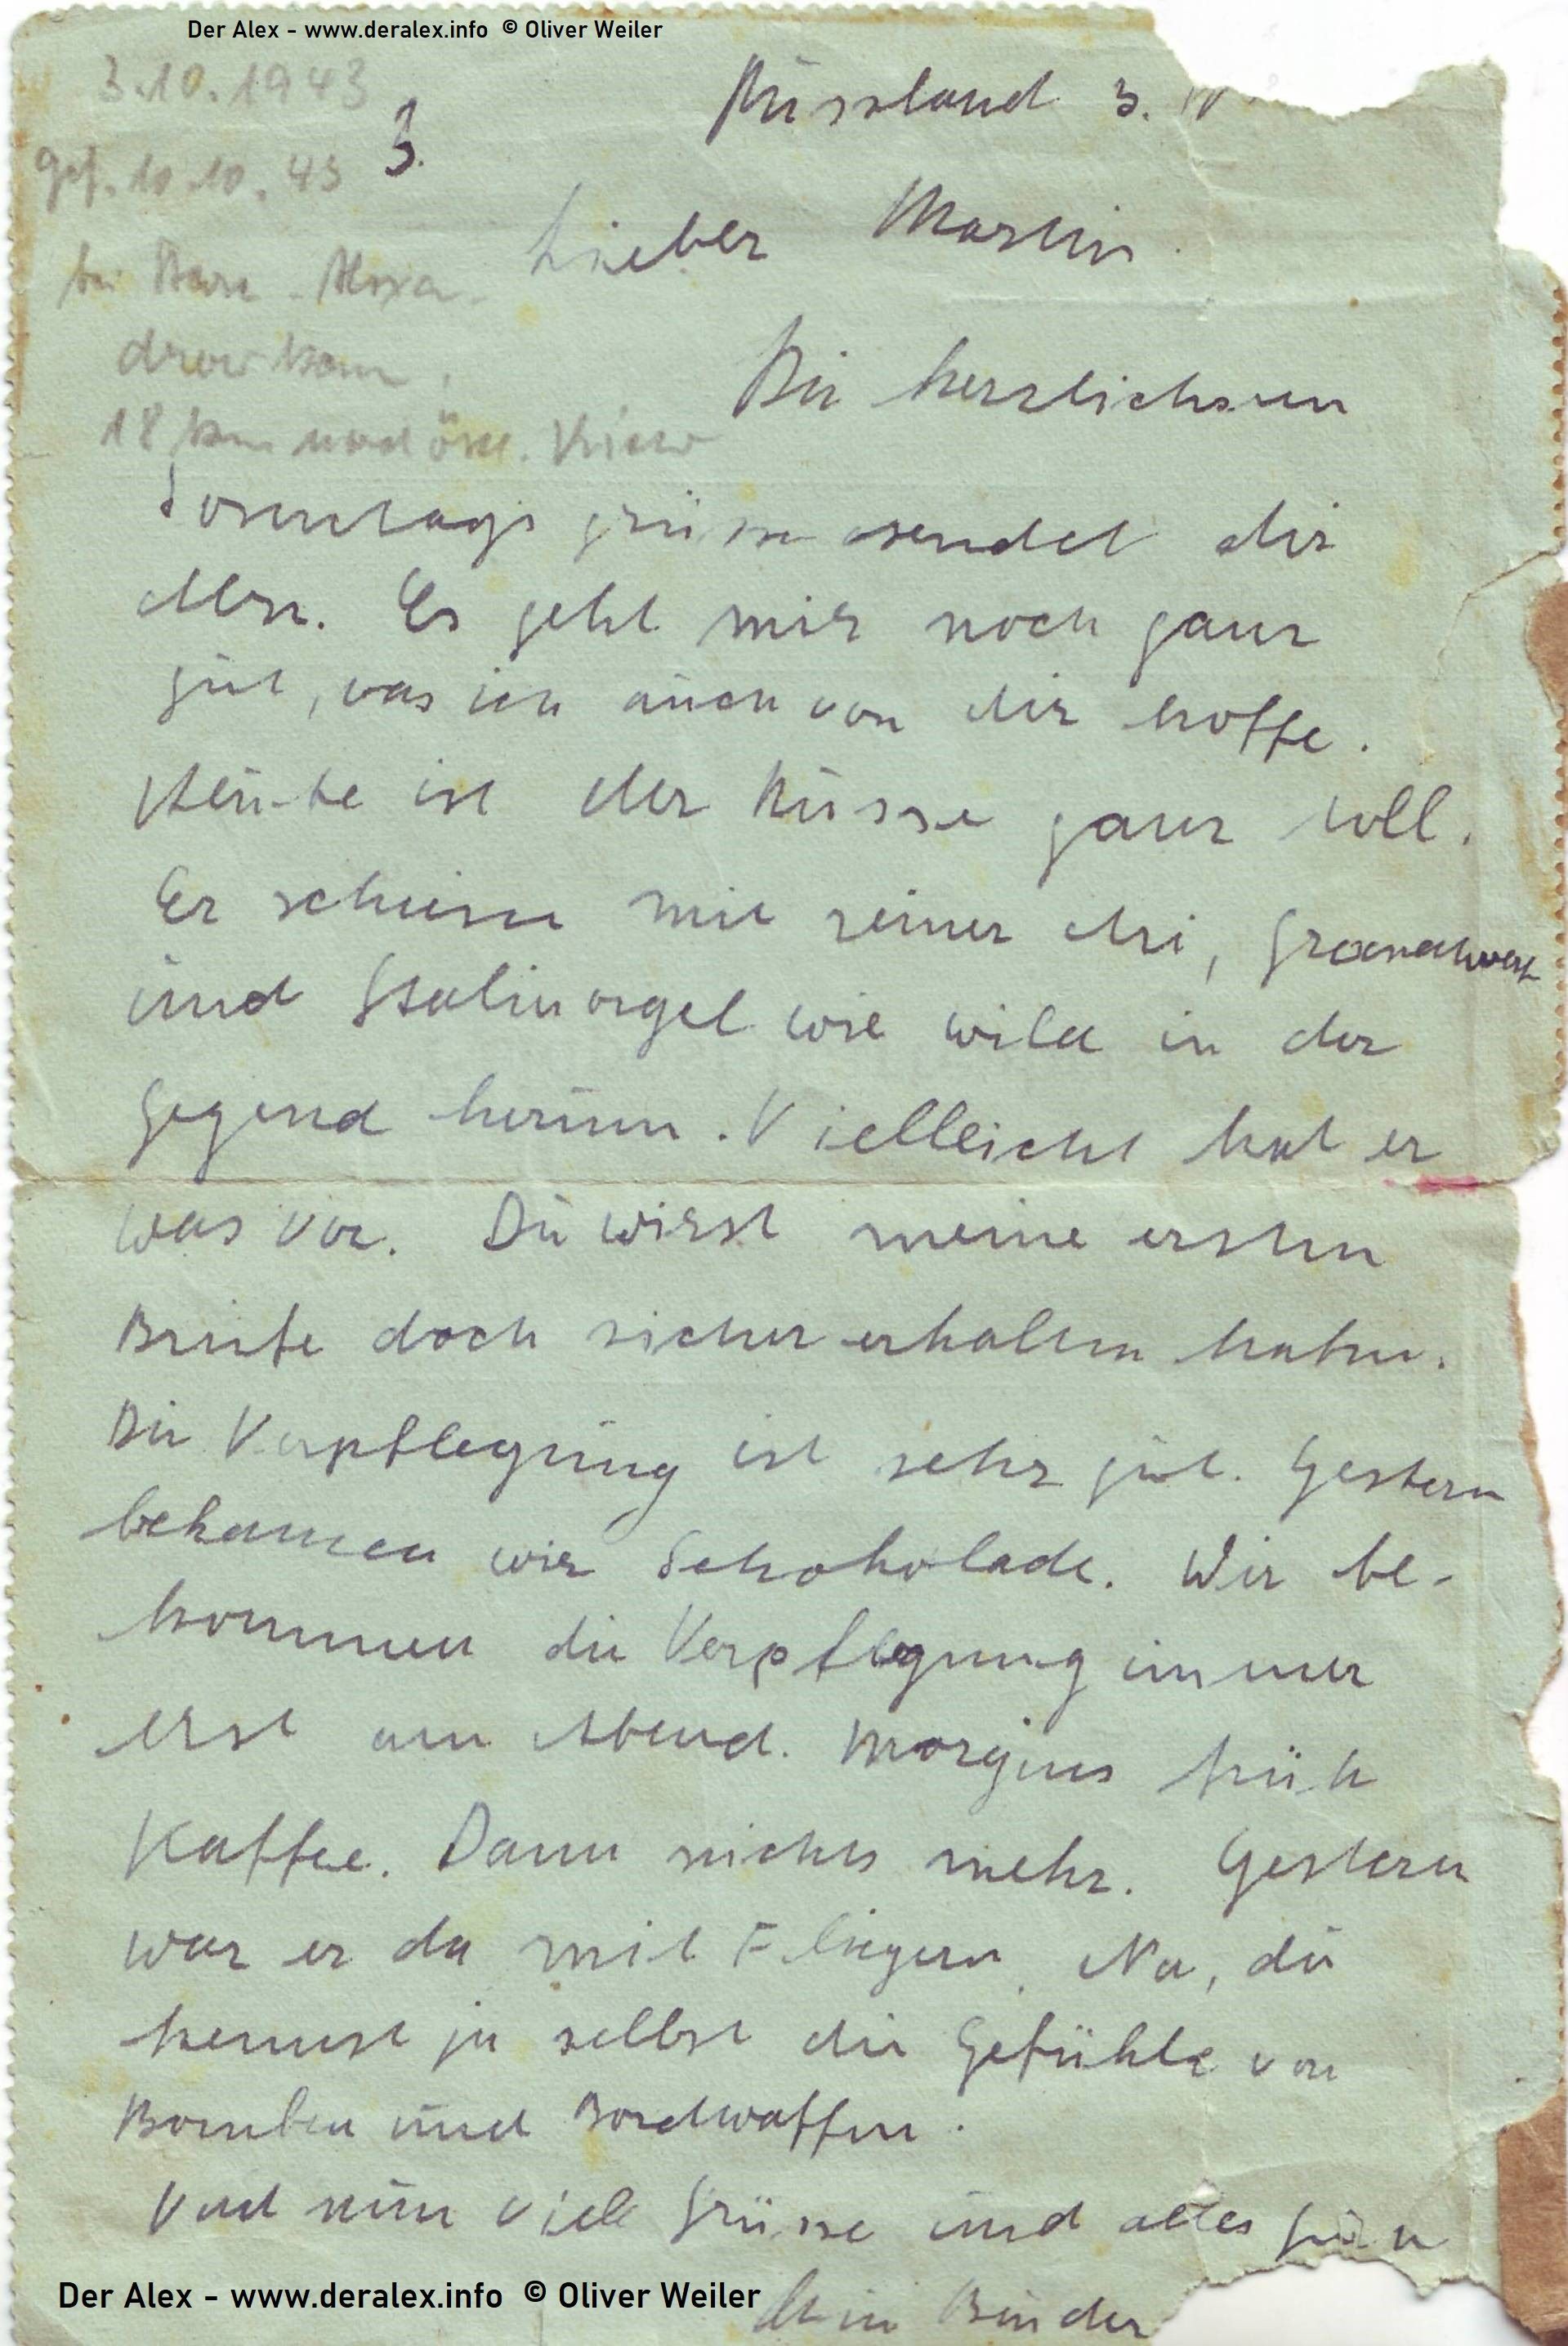 Der Alex - www.deralex.info © Oliver Weiler
3.10.1943
Russland 3.
3.
gef. 10.10.43
Lieber Martin
bei Alexa-
drowkam.
Die herzlichsten
18 km nordöstl. Kiew
Sonntagsgrüsse sendet dir
Es geht mir noch ganz
gut, was ich auch von dir hoffe.
Heute ist der Russe ganz toll.
Er schiesst mit seiner Ari, Granatwerf
und Stalinorgel wie wild in der
Gegend herum. Vielleicht hat er
was vor. Du wirst meine ersten
Briefe doch sicher erhalten haben.
Die Verpflegung ist sehr gut. Gestern
bekamen wir Schokolade. Wir be-
kommen die Verpflegung immer
erst am Abend. Morgens früh
Kaffee. Dann nichts mehr. Gestern
war er da mit Fliegern. Na, du
kennst ja selbst die Gefühle von
Bomben und Bordwaffen.
Und nun viele Grüsse und alles
Dein Bruder
Der Alex - www.deralex.info © Oliver Weiler